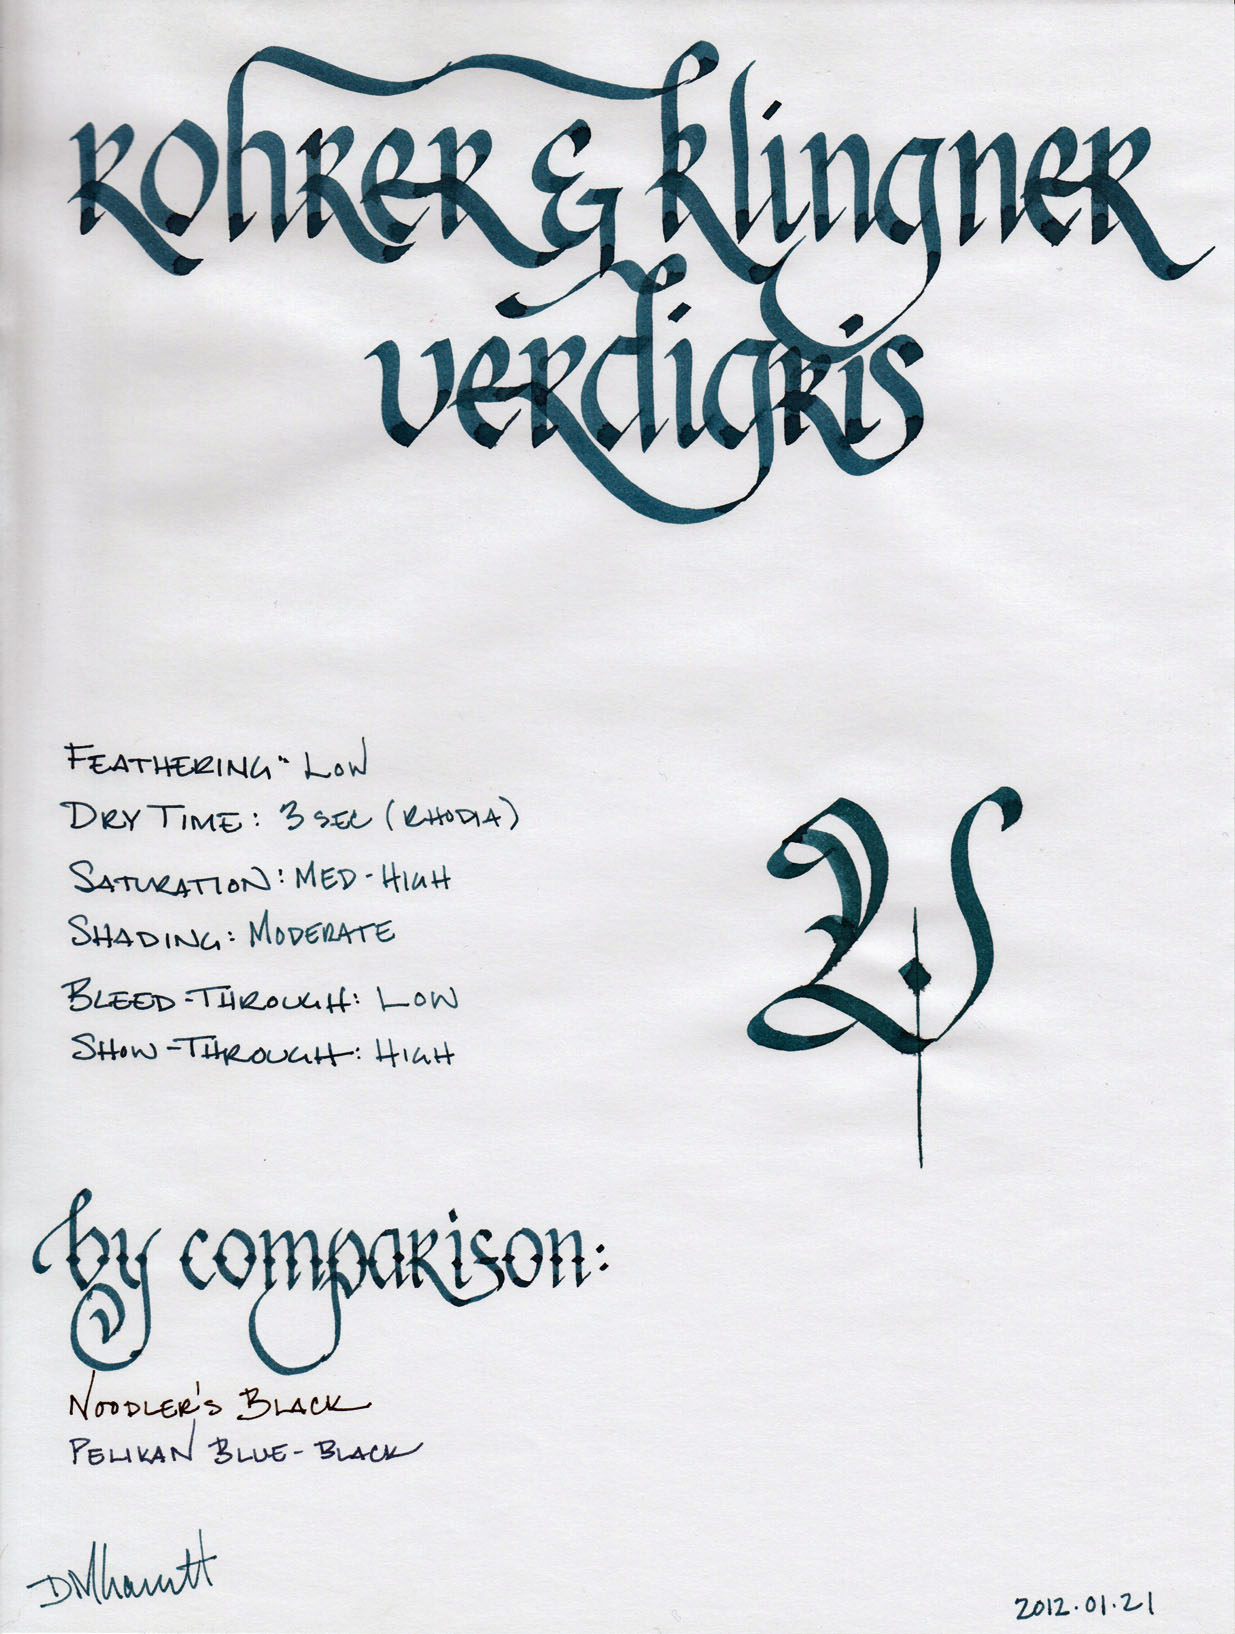 rohrer & klingner
verdigris
FEATHERING: LOW
DRY TIME: 3 SEC (RHODIA)
SATURATION: MED-HIGH
SHADING: MODERATE
BLEED-THROUGH: LOW
SHOW-THROUGH: HIGH
V
by comparison:
NOODLER'S BLACK
PELIKAN BLUE-BLACK
2012.01.21